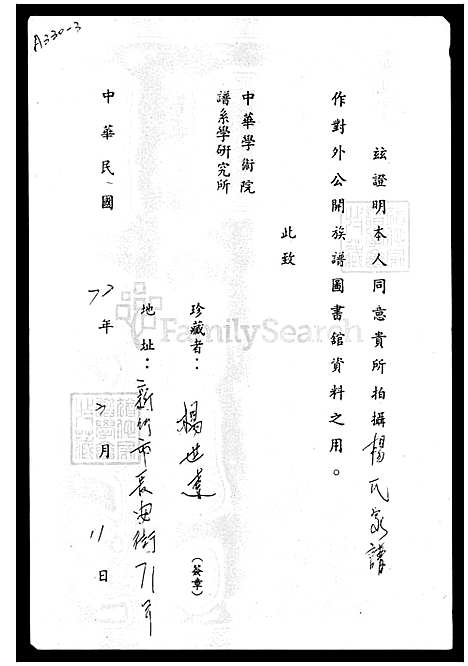 A330-3
茲證明本人同意貴所拍攝楊氏家譜
作對外公開族譜圖書館資料之用。
此致
中華學術院
譜系學研究所
珍藏者：楊世（簽章）
地址：新竹市長安街71号
中華民國
年
月11日
FamilySearch